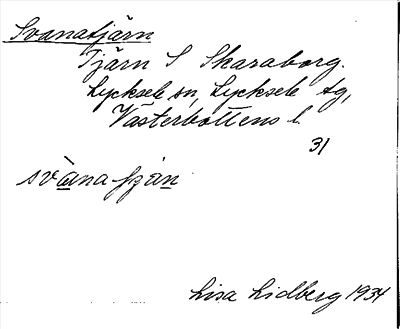 Svanatjärn
Tjärn S Skaraborg.
Lycksele sn, Lycksele tg,
Västerbottens l.
31
Lisa Lidberg 1934